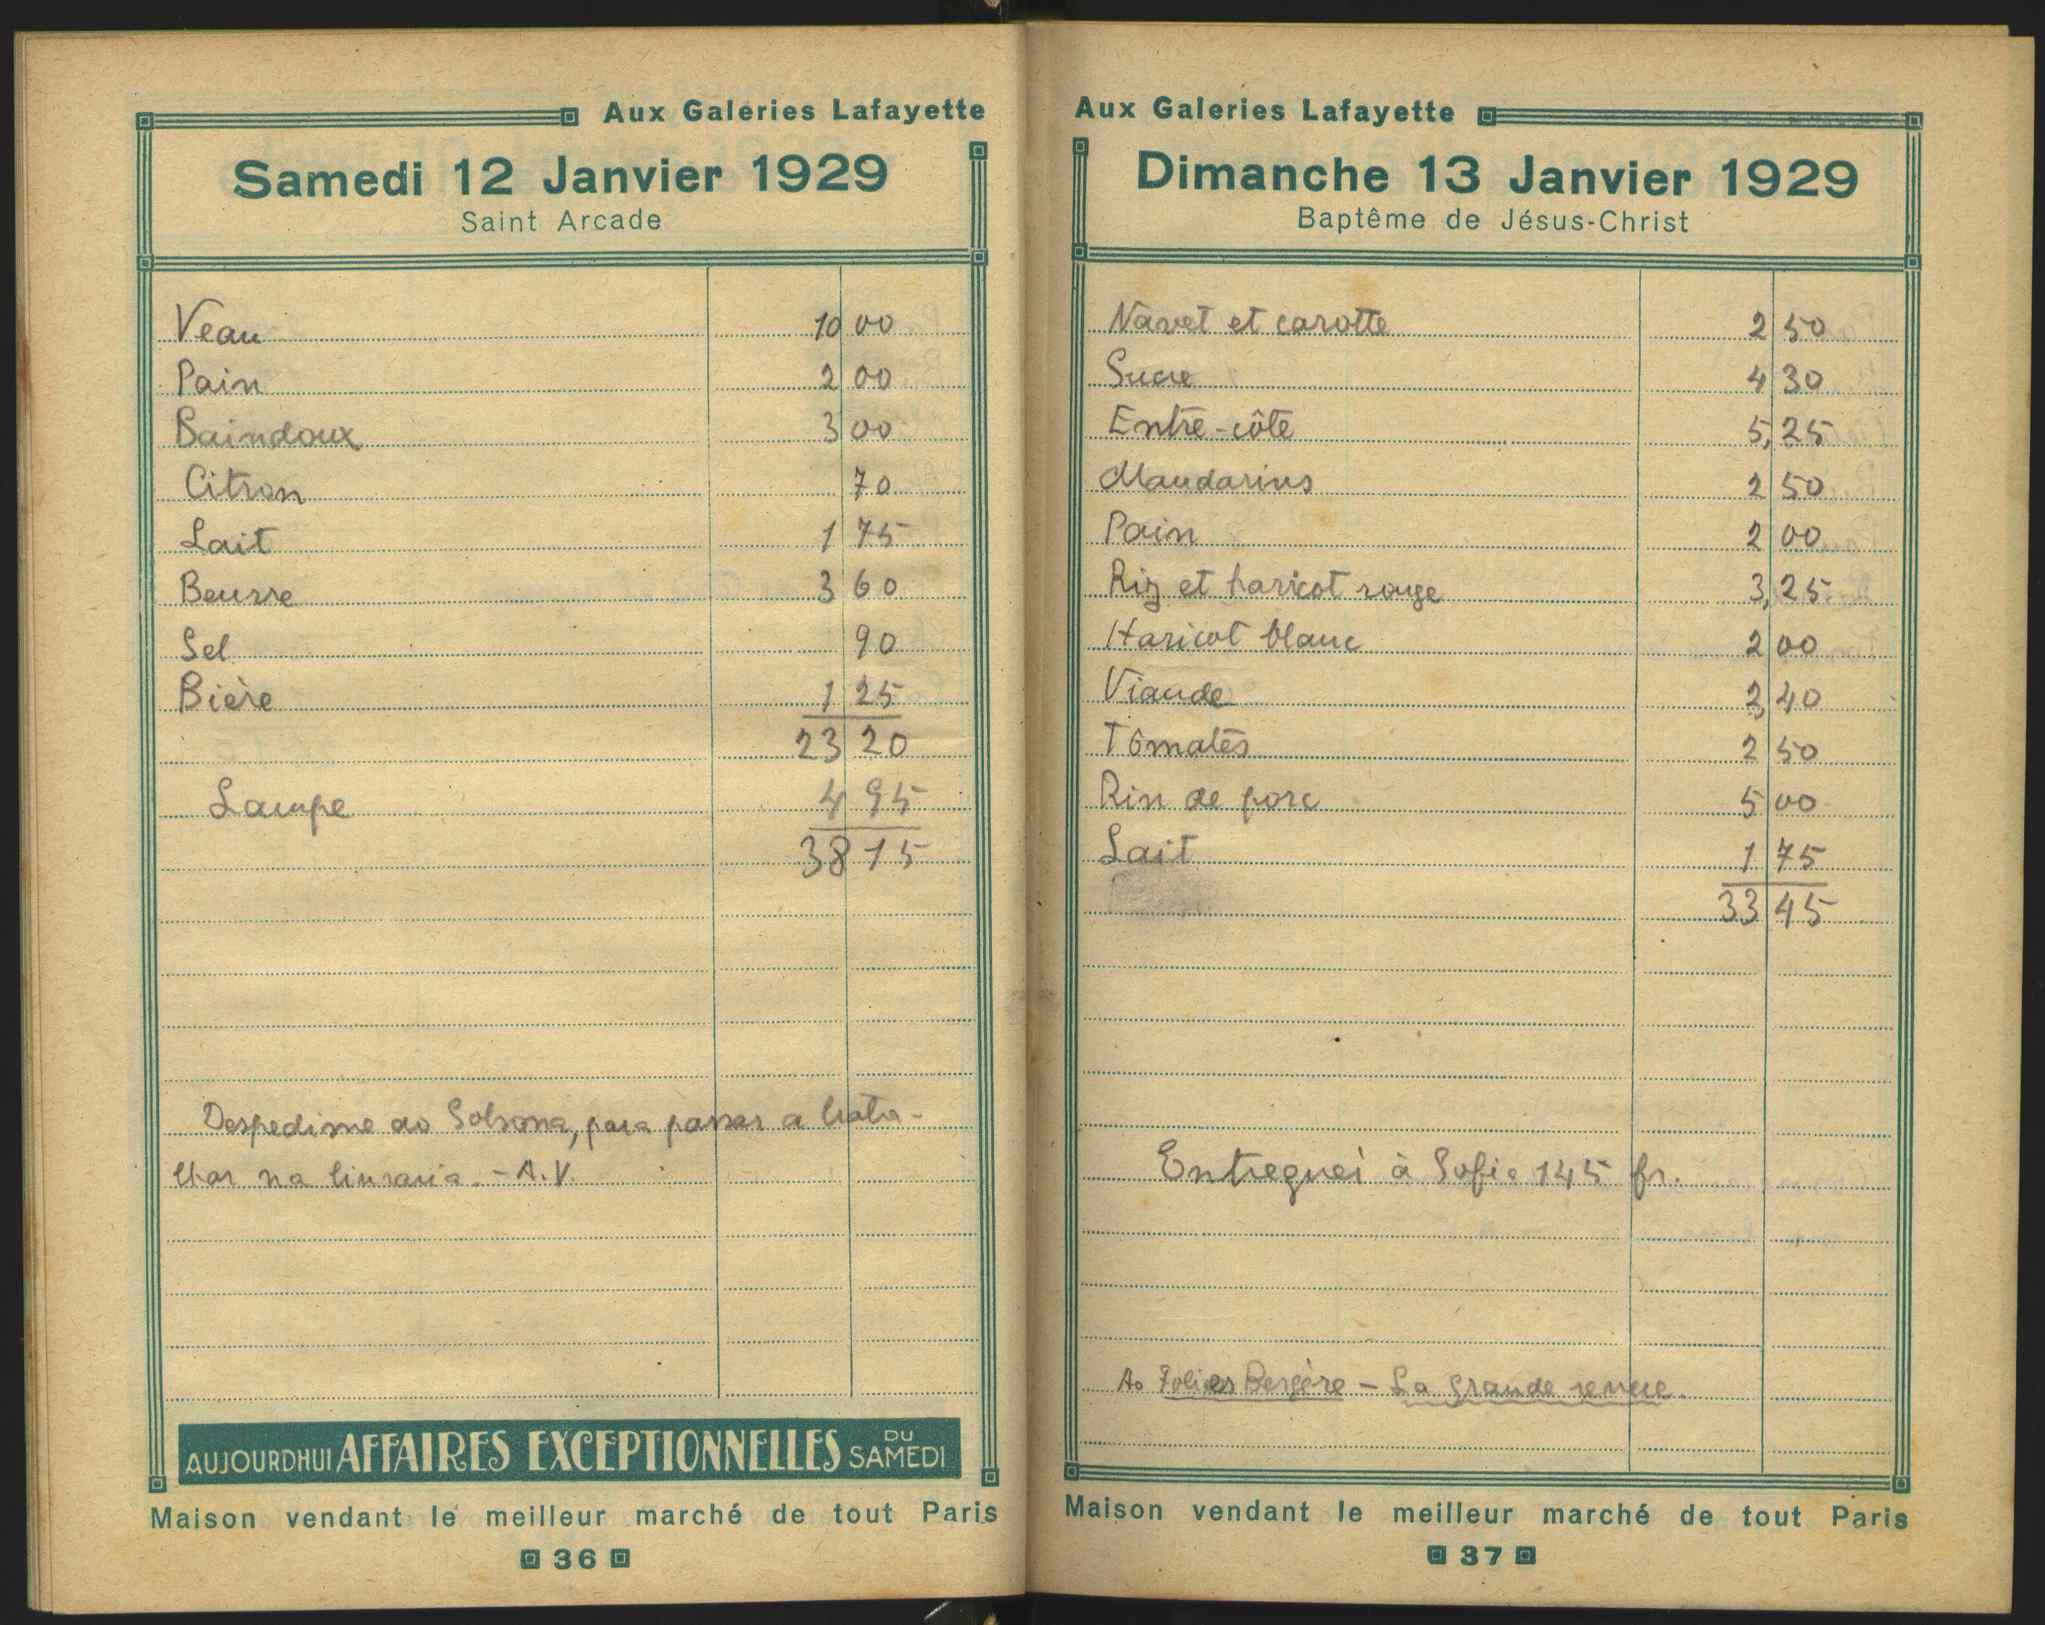 Aux Galeries Lafayette
Samedi 12 Janvier 1929
Saint Arcade
Veau 10 00
Pain 2 00
Baindoux 3 00
Citron 70
Lait 1 75
Beurre 3 60
Sel 90
Bière 1 25
23 20
Lampe 4 95
38 15
Despedime do Solsona, para passar a traba-
lhar na livraria. - A.V.
AUJOURDHUI AFFAIRES EXCEPTIONNELLES DU SAMEDI
Maison vendant le meilleur marché de tout Paris
36
Aux Galeries Lafayette
Dimanche 13 Janvier 1929
Baptême de Jésus-Christ
Navet et carotte 2 50
Sucre 4 30
Entre-côte 5,25
Mandarins 2 50
Pain 2 00
Riz et haricot rouge 3,25
Haricot blanc 2 00
Viande 2,40
Tomates 2 50
Rin de porc 5 00
Lait 1 75
33 45
Entreguei à Sofia 145 fr.
Ao Folies Bergère - La grande revue.
Maison vendant le meilleur marché de tout Paris
37